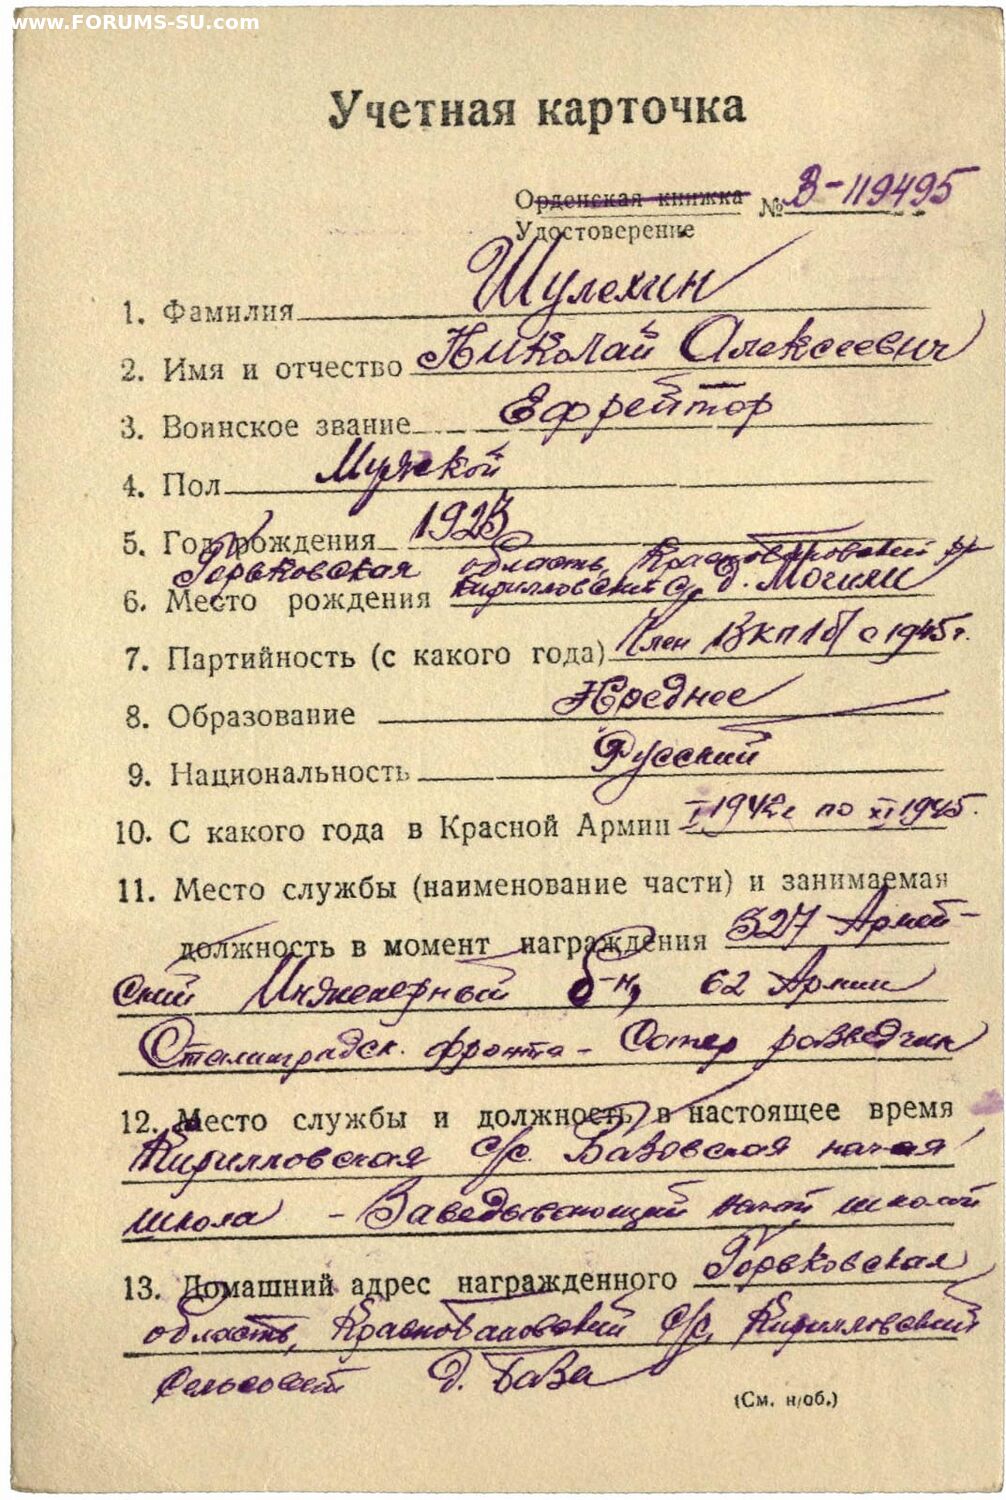 www.FORUMS-SU.com
Учетная карточка
Орденская книжка № В-119495
Удостоверение
1. Фамилия Шулехин
2. Имя и отчество Николай Алексеевич
3. Воинское звание Ефрейтор
4. Пол Мужской
5. Год рождения 1923
Горьковская область, Красно
6. Место рождения Кирилловский с/с д.
7. Партийность (с какого года) Член ВКП/б/ с 1945г.
8. Образование Среднее
9. Национальность Русский
10. С какого года в Красной Армии I 1942г по XI 1945.
11. Место службы (наименование части) и занимаемая
должность в момент награждения 327 Армей-
ский Инженерный б-н, 62 Армии
Сталинградск. фронта - Сапер разведчик
12. Место службы и должность в настоящее время
Кирилловская с/с. Базовская
школа - Заведывающий школой
13. Домашний адрес награжденного Горьковская
область, с/с, Кирилловский
сельсовет д. База
(См. н/об.)